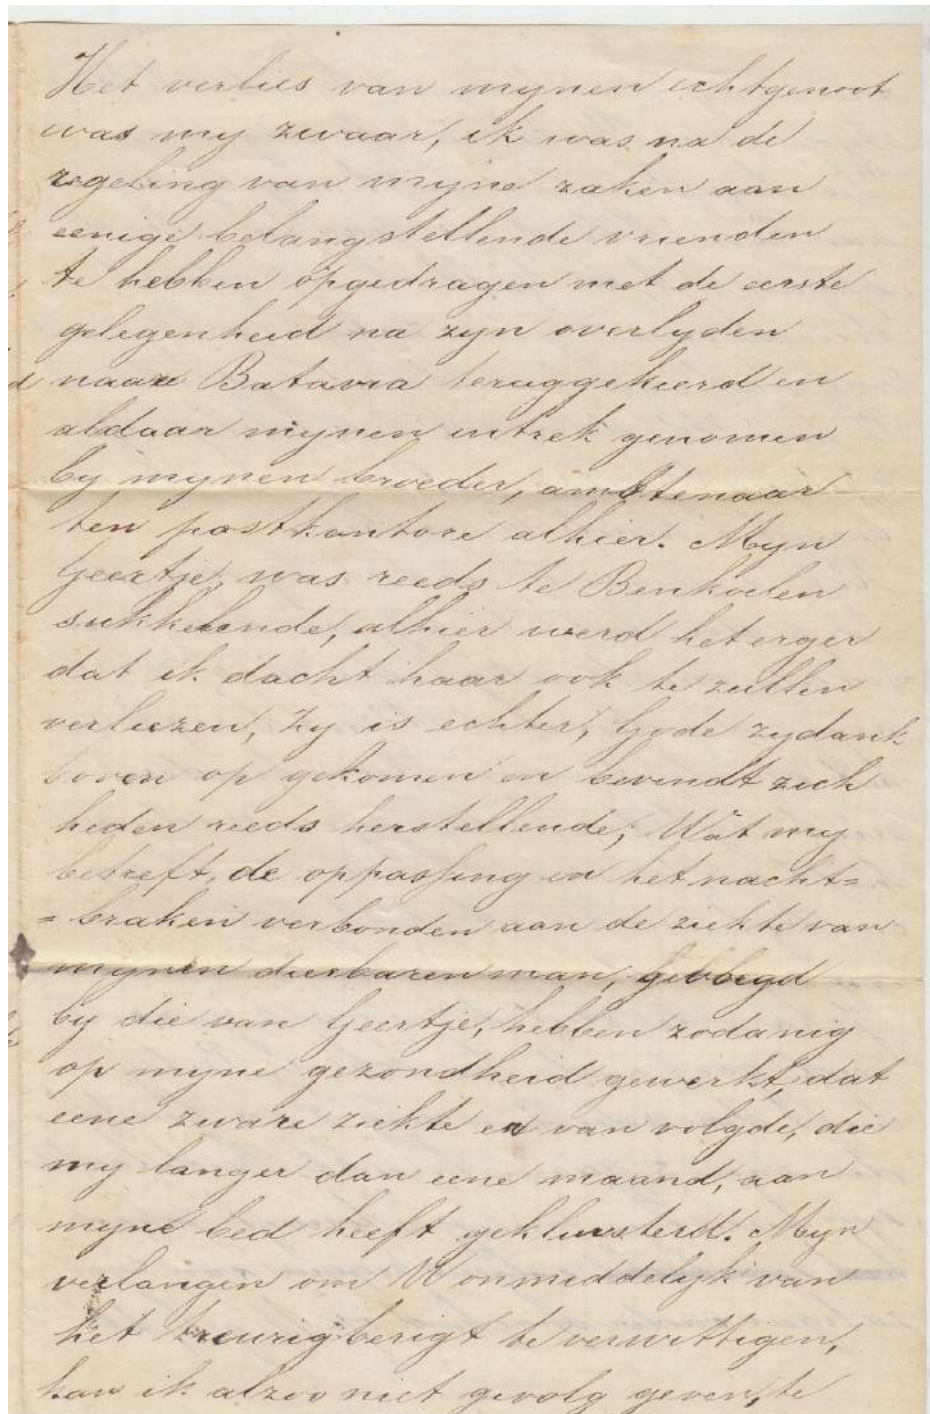 Het verlies van mynen echtgenoot
was my zwaar, ik was na de
regeling van myne zaken aan
eenige belangstellende vrienden
te hebben opgedragen met de eerste
gelegenheid na zyn overlyden
naar Batavia teruggekeerd en
aldaar mynen intrek genomen
by mynen broeder, ambtenaar
ten postkantore alhier. Myn
Geertje, was reeds te Benkoelen
sukkelende, alhier werd het erger
dat ik dacht haar ook te zullen
verliezen, zy is echter, Gode zydank
boven op gekomen en bevindt zich
heden reeds herstellende; Wat my
betreft, de oppassing en het nacht=
=braken verbonden aan de ziekte van
mynen dierbaren man, gevoegd
by die van Geertje, hebben zodanig
op myne gezondheid gewerkt, dat
eene zware ziekte er van volgde, die
my langer dan eene maand, aan
myne bed heeft gekluisterd. Myn
verlangen om U onmiddelyk van
het treurig berigt te verwittigen,
kan ik alzoo niet gevolg geven, te